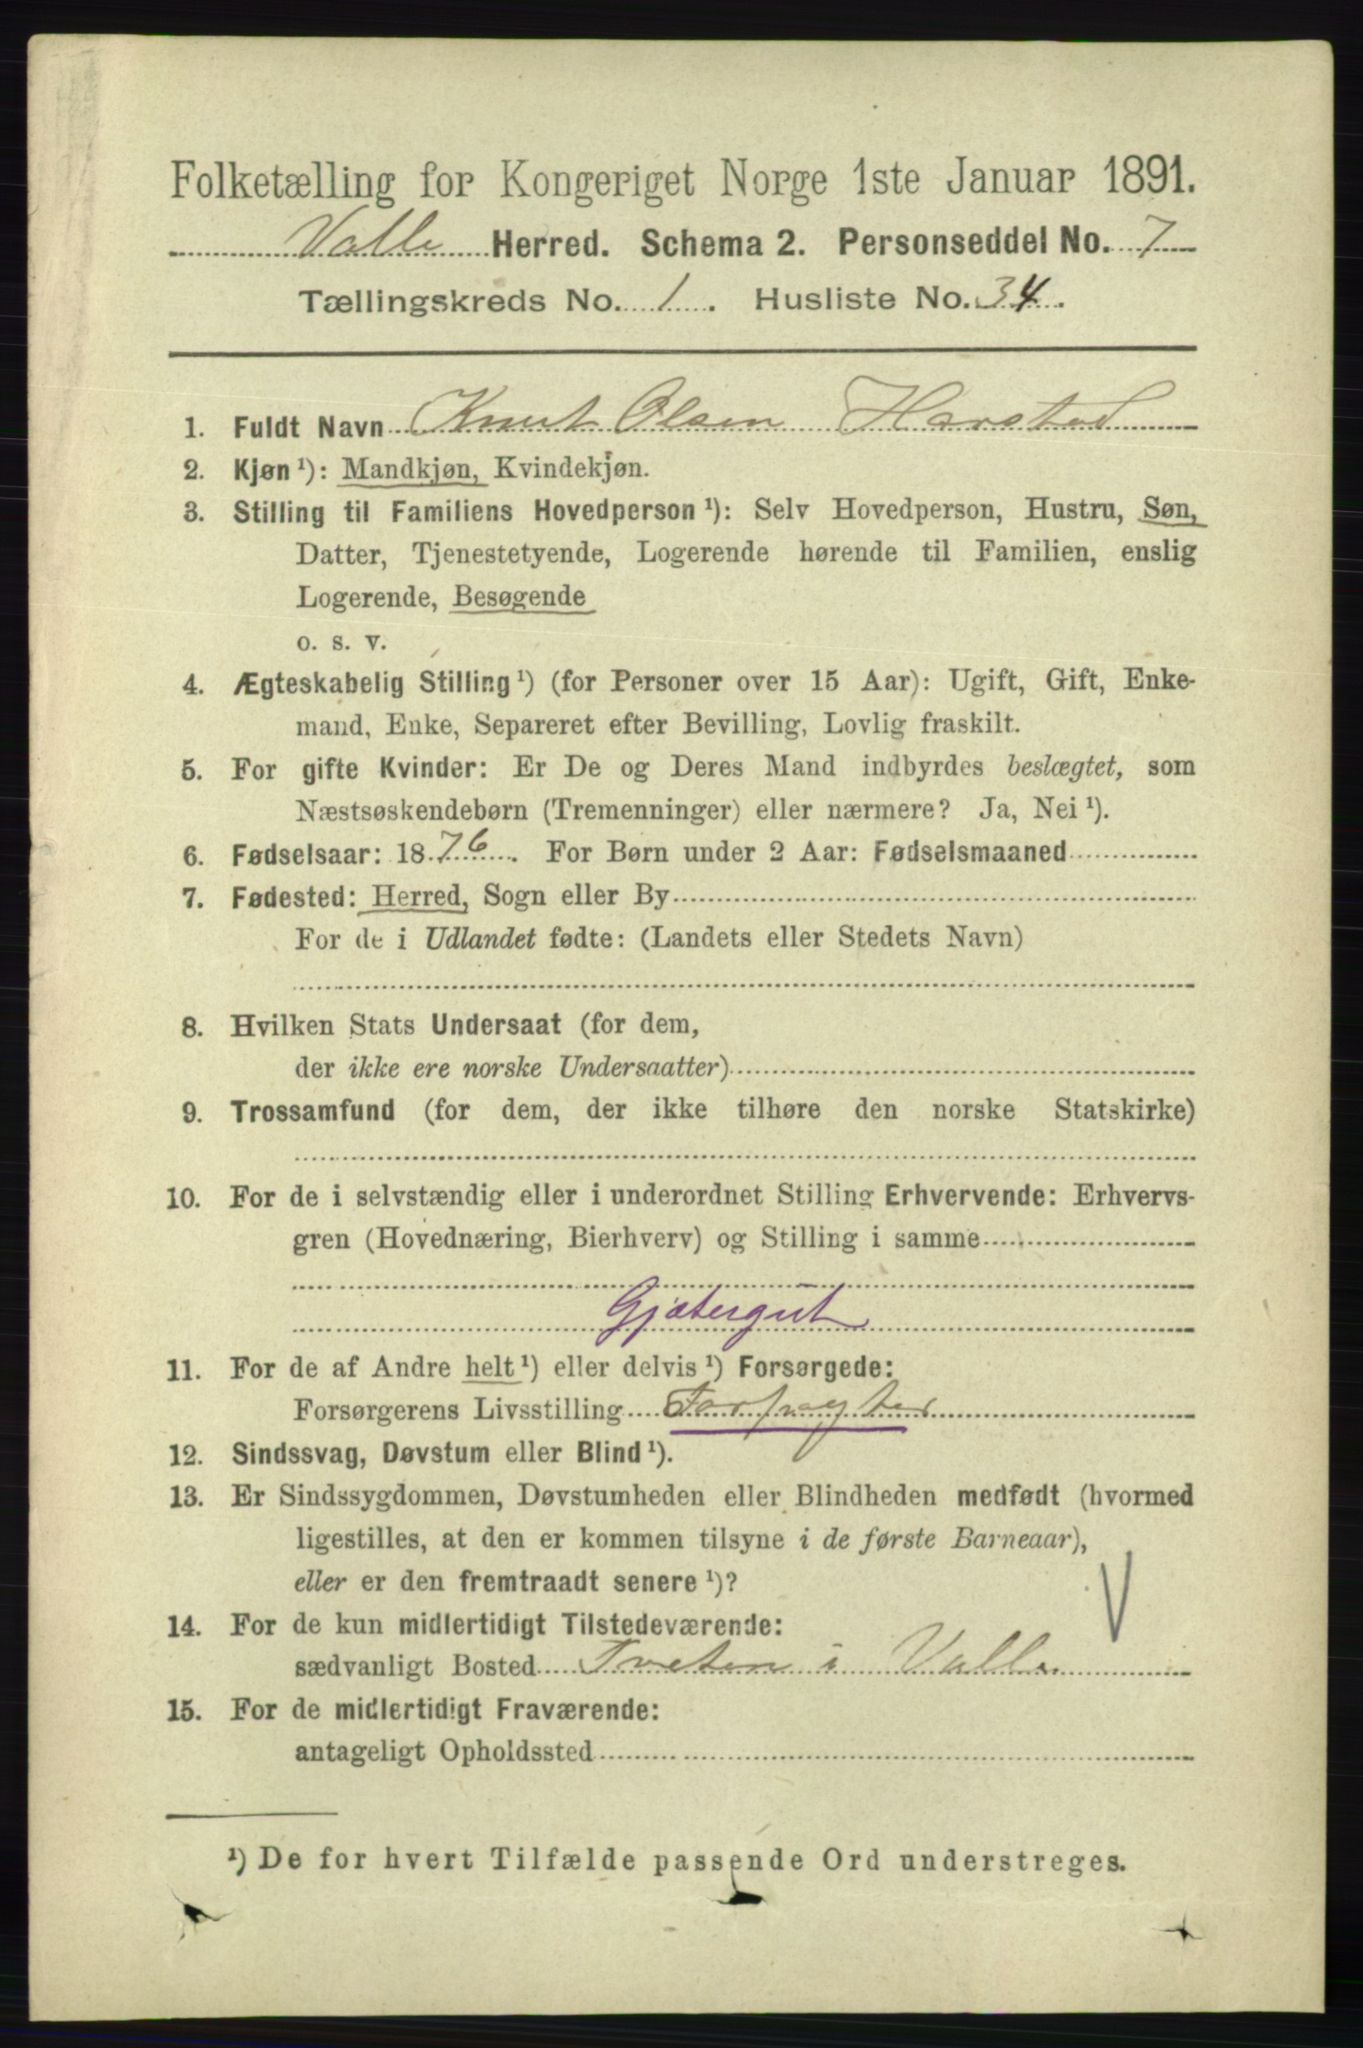 Folketælling for Kongeriget Norge 1ste Januar 1891.
Valle Herred. Schema 2. Personseddel No. 7
Tællingskreds No. 1. Husliste No. 34.
1. Fuldt Navn Knut Olsen Harstad
2. Kjøn ¹): Mandkjøn, Kvindekjøn.
3. Stilling til Familiens Hovedperson ¹): Selv Hovedperson, Hustru, Søn,
Datter, Tjenestetyende, Logerende hørende til Familien, enslig
Logerende, Besøgende
o. s. v.
4. Ægteskabelig Stilling ¹) (for Personer over 15 Aar): Ugift, Gift, Enke-
mand, Enke, Separeret efter Bevilling, Lovlig fraskilt.
5. For gifte Kvinder: Er De og Deres Mand indbyrdes beslægtet, som
Næstsøskendebørn (Tremenninger) eller nærmere? Ja, Nei ¹).
6. Fødselsaar: 1876. For Børn under 2 Aar: Fødselsmaaned
7. Fødested: Herred, Sogn eller By
For de i Udlandet fødte: (Landets eller Stedets Navn)
8. Hvilken Stats Undersaat (for dem,
der ikke ere norske Undersaatter)
9. Trossamfund (for dem, der ikke tilhøre den norske Statskirke)
10. For de i selvstændig eller i underordnet Stilling Erhvervende: Erhvervs-
gren (Hovednæring, Bierhverv) og Stilling i samme
Gjætergut
11. For de af Andre helt ¹) eller delvis ¹) Forsørgede:
Forsørgerens Livsstilling Forpagter
12. Sindssvag, Døvstum eller Blind ¹).
13. Er Sindssygdommen, Døvstumheden eller Blindheden medfødt (hvormed
ligestilles, at den er kommen tilsyne i de første Barneaar),
eller er den fremtraadt senere ¹)?
V
14. For de kun midlertidigt Tilstedeværende:
sædvanligt Bosted Tveten i Valle
15. For de midlertidigt Fraværende:
antageligt Opholdssted
¹) De for hvert Tilfælde passende Ord understreges.